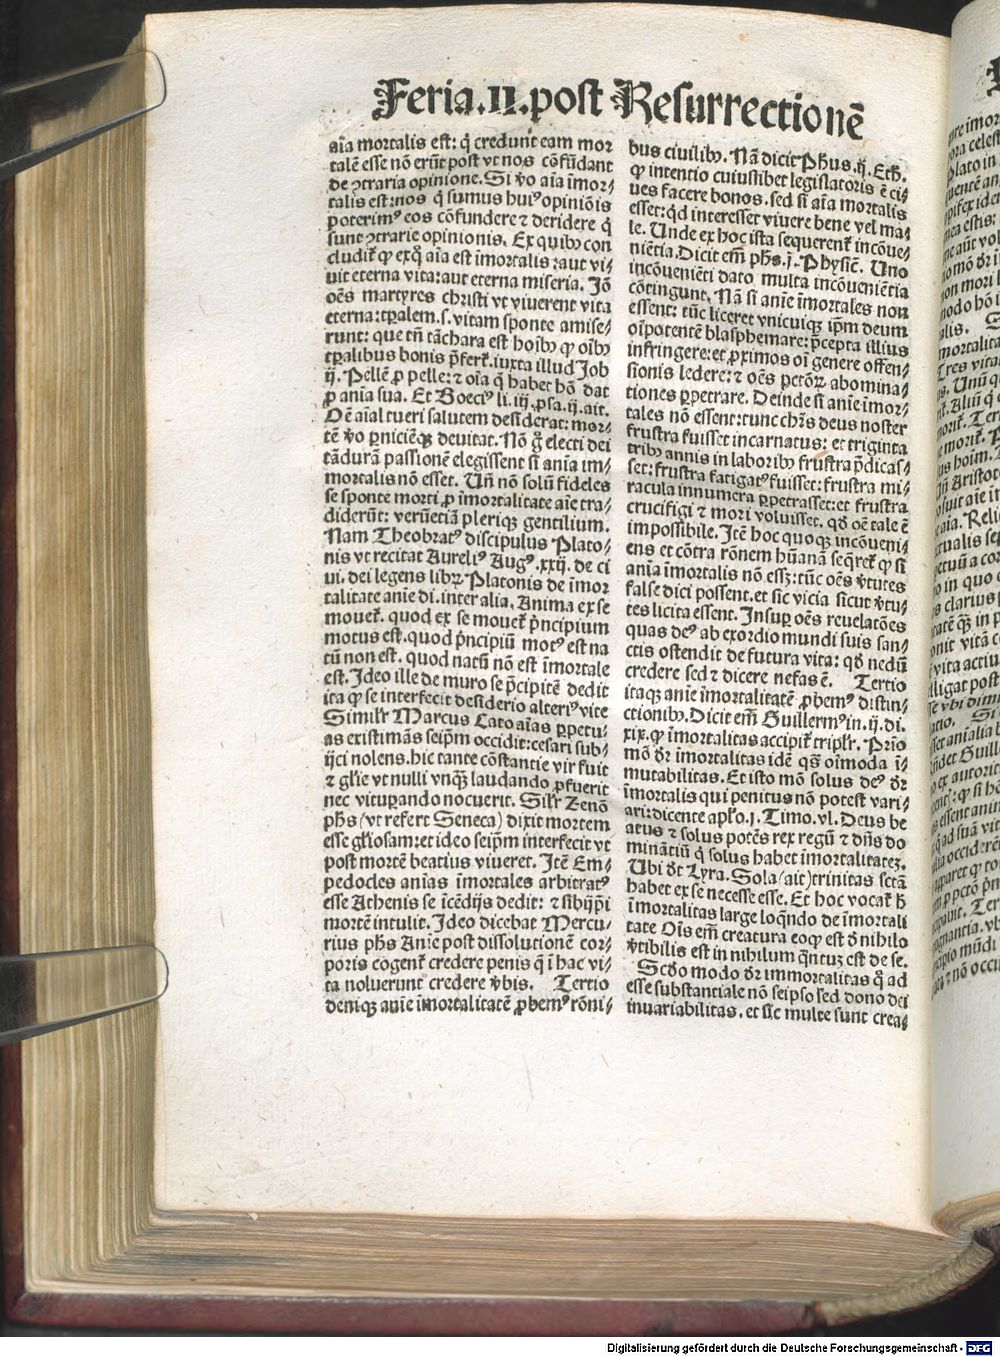 Feria.II.post Resurrectionē
aīa mortalis est: q̇ credunt eam mor
talē esse nō erūt post vt nos cōfūdant
de ꝯtraria opinione. Si v̄o aīa īmor⸗
talis est: nos q̇ sumus huiꝰ opiniōis
poterimꝰ eos cōfundere ⁊ deridere q̇
sunt ꝯtrarie opinionis. Ex quibꝫ con
cludit᷑ ꝙ exq̊ aīa est īmortalis: aut vi⸗
uit eterna vita: aut eterna miseria. Iō
oēs martyres christi vt viuerent vita
eterna: tꝑalem.s. vitam sponte amise⸗
runt: que tn̄ tāchara est hoībꝫ ꝙ oībꝫ
tꝑalibus bonis p̄fert᷑. iuxta illud Job
ij. Pellē ꝓ pelle: ⁊ oīa q̄ habet hō dat
ꝓ anīa sua. Et Boeciꝰ li. iij. ꝓsa. ij. ait.
Oē aīal tueri salutem desiderat: mor⸗
tē v̄o ꝑniciēqꝫ deuitat. Nō g̊ electi dei
tādurā passionē elegissent si anīa im⸗
mortalis nō esset. Un̄ nō solū fideles
se sponte morti ꝓ īmortalitate aīe tra⸗
diderūt: verūetiā pleriqꝫ gentilium.
Nam Theobratꝰ discipulus Plato⸗
nis vt recitat Aureliꝰ Augꝰ. xxij. de ci
ui. dei legens libꝝ Platonis de īmor
talitate anīe di. inter alia. Anima ex se
mouet᷑. quod ex se mouet᷑ p̄ncipium
motus est. quod p̄ncipiū motꝰ est na
tū non est. quod natū nō est īmortale
est. Ideo ille de muro se p̄cipitē dedit
ita ꝙ se interfecit desiderio alteriꝰ vite
Similr̄ Marcus Cato aīas ꝑpetu⸗
as existimās seipm̄ occidit: cesari sub⸗
ijci nolens. hic tante cōstantie vir fuit
⁊ gl̄ie vt nulli vnq̄ laudando ꝓfuerit
nec vituꝑando nocuerit. Silr̄ Zenō
ph̄s (vt refert Seneca) dixit mortem
esse gl̄iosam: et ideo seipm̄ interfecit vt
post mortē beatius viueret. Itē Em⸗
pedocles anīas īmortales arbitratꝰ
esse Athenis se īcēdijs dedit: ⁊ sibijp̄i
mortē intulit. Ideo dicebat Mercu⸗
rius ph̄s Anīe post dissolutionē cor⸗
poris cogent᷑ credere penis q̄ ī hac vi⸗
ta noluerunt credere v̄bis. Tertio
deniqꝫ anīe īmortalitatē ꝓbemꝰ rōni⸗
bus ciuilibꝫ. Nā dicit Ph̄us. ij. Eth.
ꝙ intentio cuiuslibet legislatoris ē ci⸗
ues facere bonos. sed si aīa mortalis
esset: qd interesset viuere bene vel ma⸗
le. Unde ex hoc ista sequerent᷑ incōue⸗
niētia. Dicit em̄ ph̄s. j. Physic̄. Uno
incōueniēti dato multa incōueniētia
cōtingunt. Nā si anīe īmortales non
essent: tūc liceret vnicuiqꝫ ip̄m deum
oīpotentē blasphemare: p̄cepta illius
infringere: et ꝓximos oī genere offen⸗
sionis ledere: ⁊ oēs pctōꝝ abomina⸗
tiones ꝑpetrare. Deinde si anīe īmor⸗
tales nō essent: tunc chr̄s deus noster
frustra fuisset incarnatus: et triginta
tribꝫ annis in laboribꝫ frustra p̄dicas⸗
set: frustra fatigatꝰ fuisset: frustra mi⸗
racula innumera ꝑpetrasset: et frustra
crucifigi ⁊ mori voluisset. qd̄ oē tale ē
impossibile. Itē hoc quoqꝫ incōueni⸗
ens et cōtra rōnem hūanā seq̄ret᷑ ꝙ si
anīa īmortalis nō essꝫ: tūc oēs v̄tutes
false dici possent. et sic vicia sicut v̄tu⸗
tes licita essent. Insuꝑ oēs reuelatōes
quas deꝰ ab exordio mundi suis san⸗
ctis ostendit de futura vita: qd̄ nedū
credere sed ⁊ dicere nefas ē. Tertio
itaqꝫ anīe īmortalitatē ꝓbemꝰ distin⸗
ctionibꝫ. Dicit em̄ Guillermꝰ in. ij. di.
xix. ꝙ īmortalitas accipit᷑ triplr̄. Prīo
mō dr̄ īmortalitas idē qs̄ oīmoda ī⸗
mutabilitas. Et isto mō solus deꝰ dr̄
īmortalis qui penitus nō potest vari⸗
ari: dicente apl̄o. j. Timo. vl. Deus be
atus ⁊ solus potēs rex regū ⁊ dn̄s do
minātiū q̇ solus habet īmortalitatēꝫ.
Ubi dt̄ Lyra. Sola (ait) trinitas sctā
habet ex se necesse esse. Et hoc vocat᷑ h̄
īmortalitas large loq̄ndo de īmortali
tate Oīs em̄ creatura eoꝙ est d̄ nihilo
v̄tibilis est in nihilum q̄ntuꝫ est de se.
Scd̄o modo dr̄ immortalitas q̊ ad
esse substantiale nō seipso sed dono dei
inuariabilitas. et sic multe sunt crea⸗
Digitalisierung gefördert durch die Deutsche Forschungsgemeinschaft - DFG